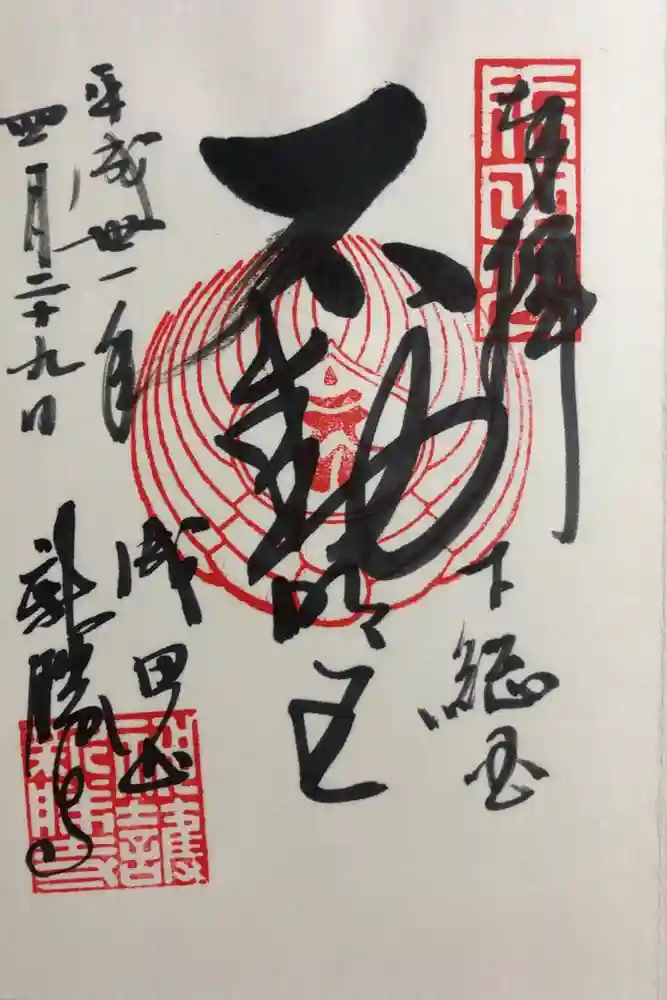 奉拝
下総国
不動明王
平成卅一年
四月二十九日
成田山
新勝寺